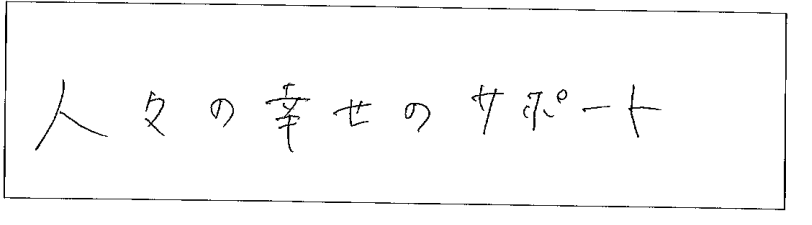 人々の幸せのサポート